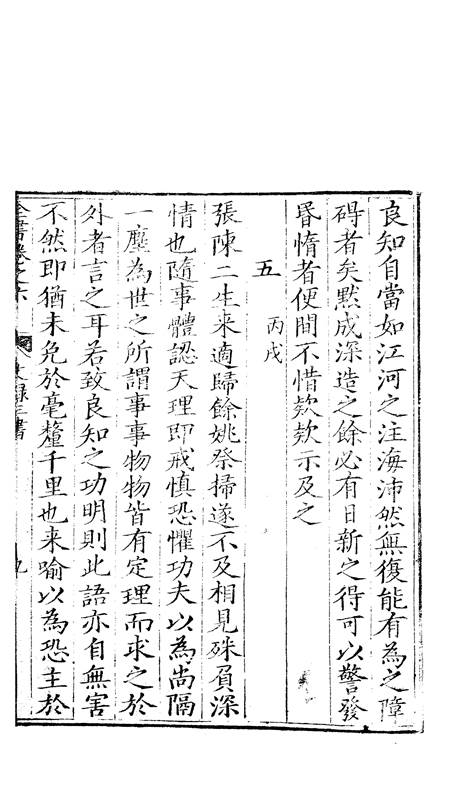 良知自當如江河之注海沛然無復能有為之障
碍者矣黙成深造之餘必有日新之得可以警發
昬惰者便間不惜欵欵示及之
五 丙戌
張陳二生来適歸餘姚祭掃遂不及相見殊負深
情也隨事體認天理即戒慎恐懼功夫以為尚隔
一塵為世之所謂事事物物皆有定理而求之於
外者言之耳若致良知之功明則此語亦自無害
不然即猶未免於毫釐千里也来喻以為恐主於
全書卷之六 文録三書 九